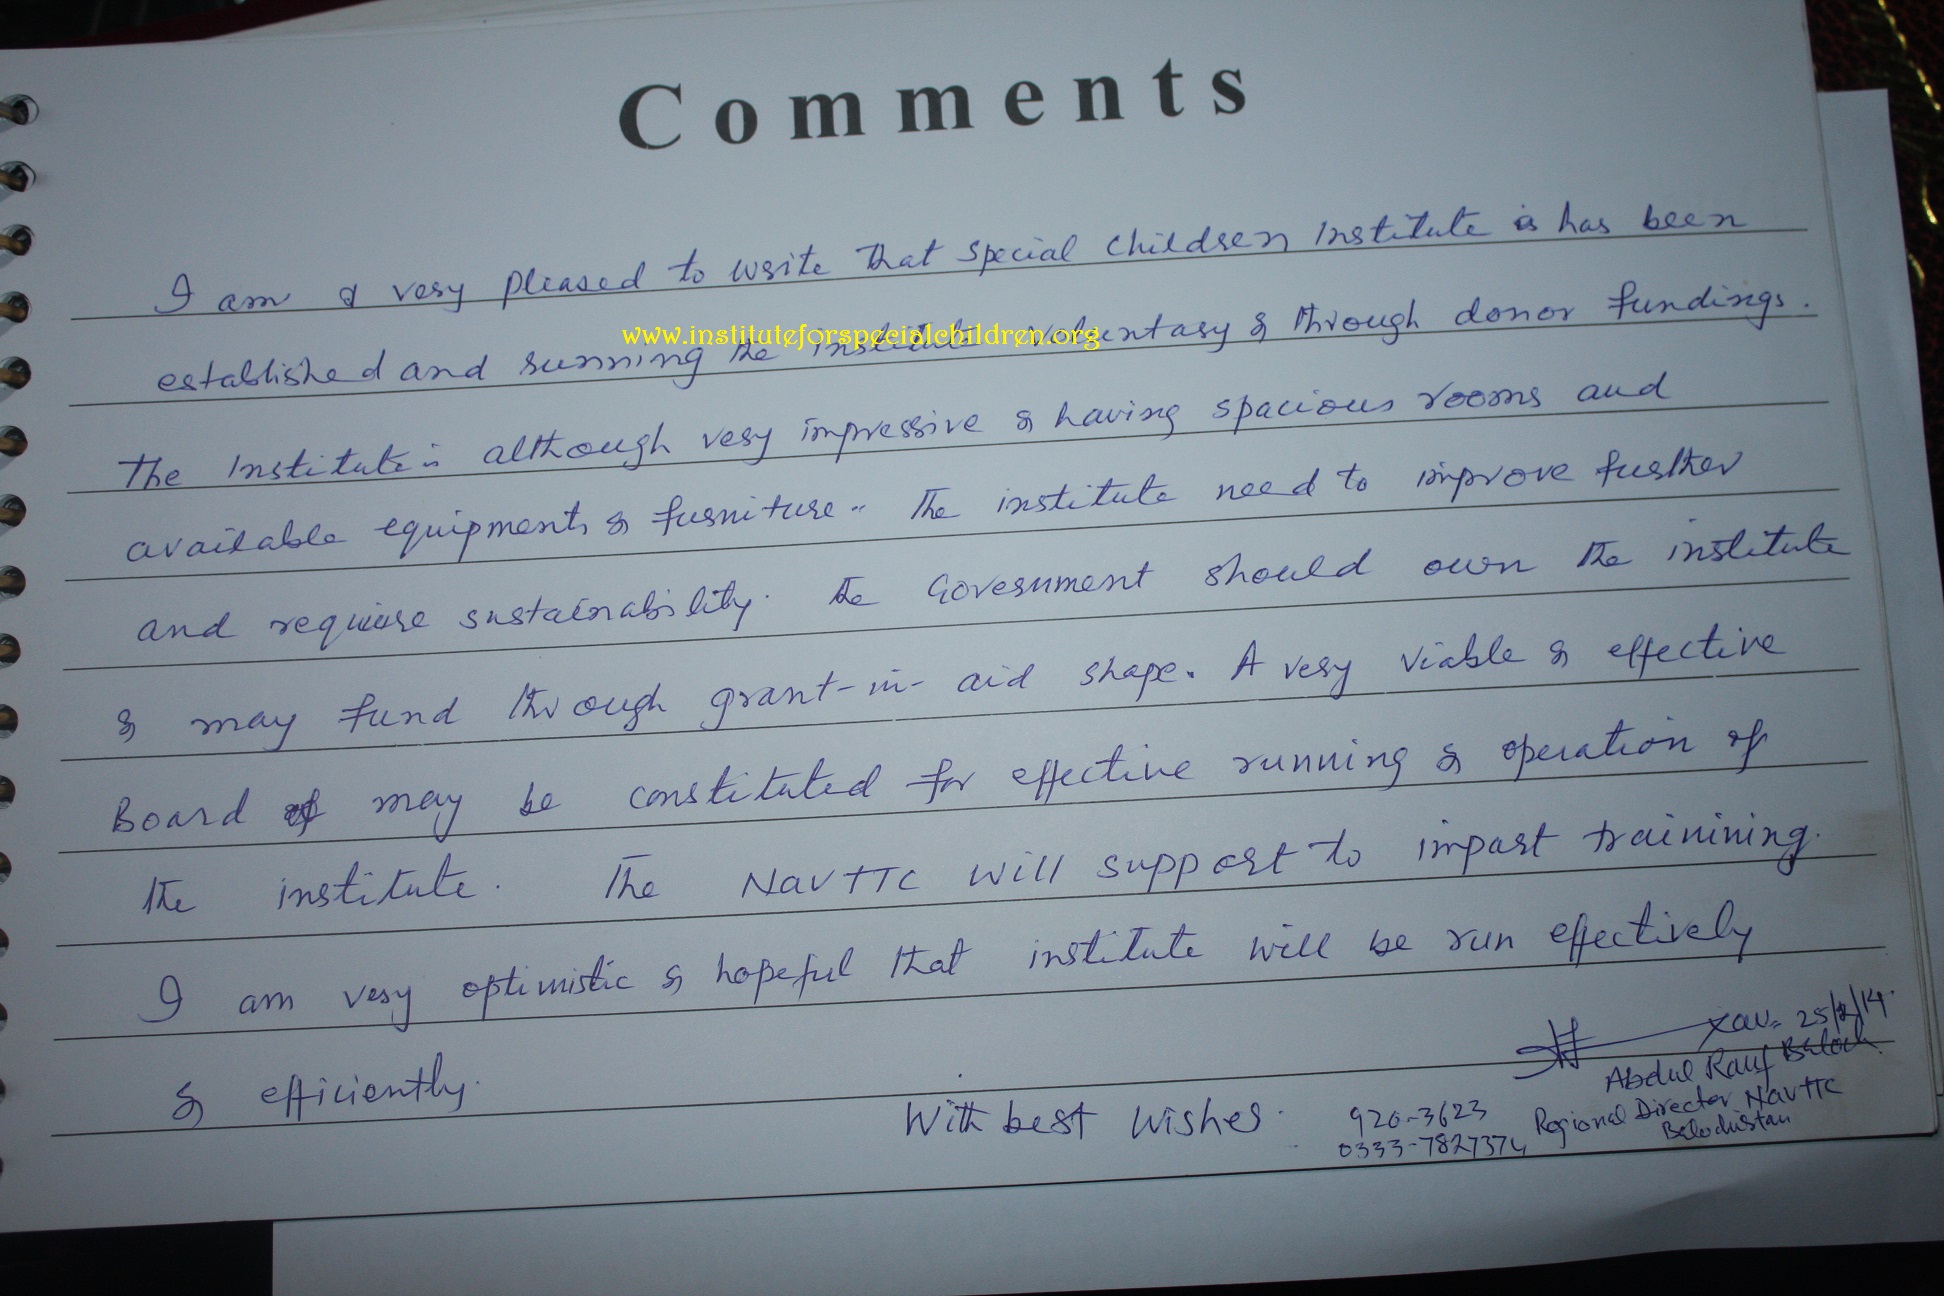 Comments
I am & very pleased to write that special children institute is has been
www.instituteforspecialchildren.org
established and running the institute voluntary & through donor fundings.
The Institute is although very impressive & having spacious rooms and
available equipments & furniture.. The institute need to improve further
and requiere sustainability. The Government should own the institute
& may fund through grant-in-aid shape. A very viable & effective
Board of may be constituted for effective running & operation of
the institute. The NAVTTC will support to impart trainining.
I am very optimistic & hopeful that institute will be run effectively
& efficiently.
With best wishes.
25/2/14
Abdul Rauf Baloch
920-3623 Regional Director NAVTTC
0333-7827374 Balochistan